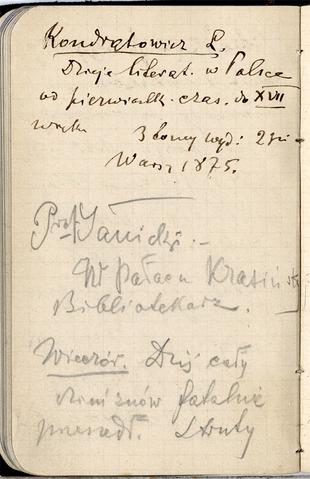 Kondratowicz L.
Dzieje literat. w Polsce
od pierwiastk. czas. do XVII
wieku 3 tomy wyd: 2gie
Warsz 1875.
Prof. Janicki. –
W pałacu Krasińsk
Bibliotekarz.
Wieczór. Dziś cały
dzień znów fatalnie
przeszedł. Smutny